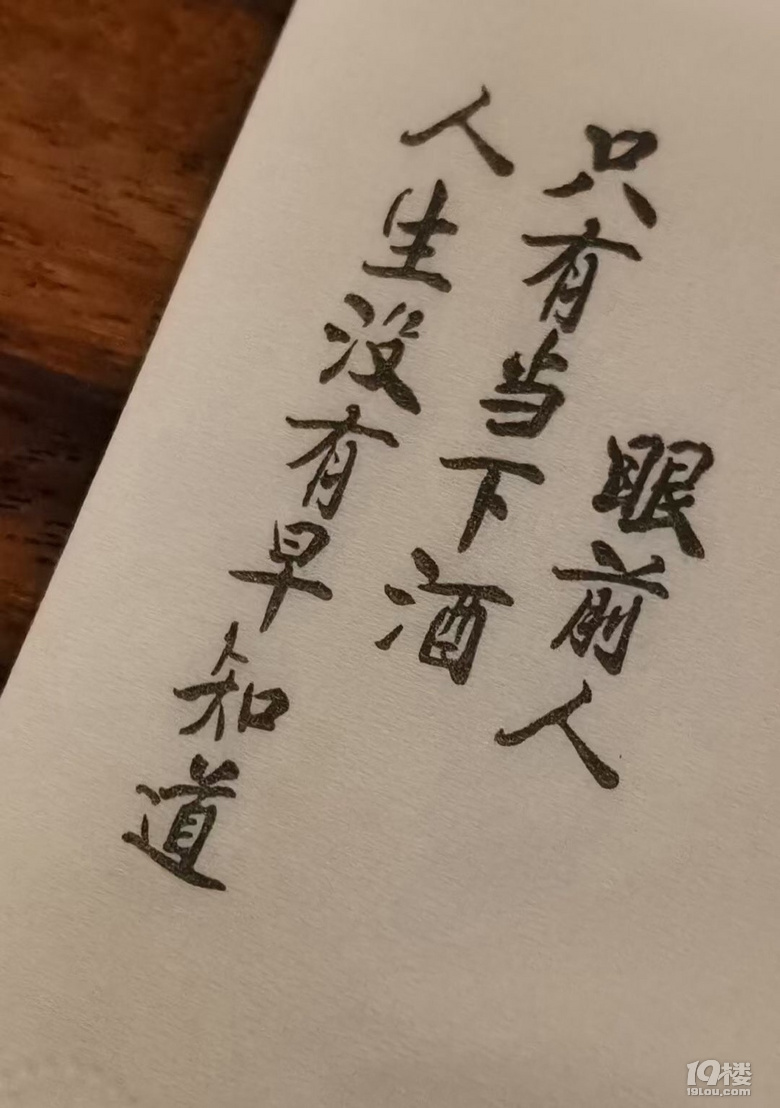 人生没有早知道
只有当下酒
眼前人
19楼
19lou.com